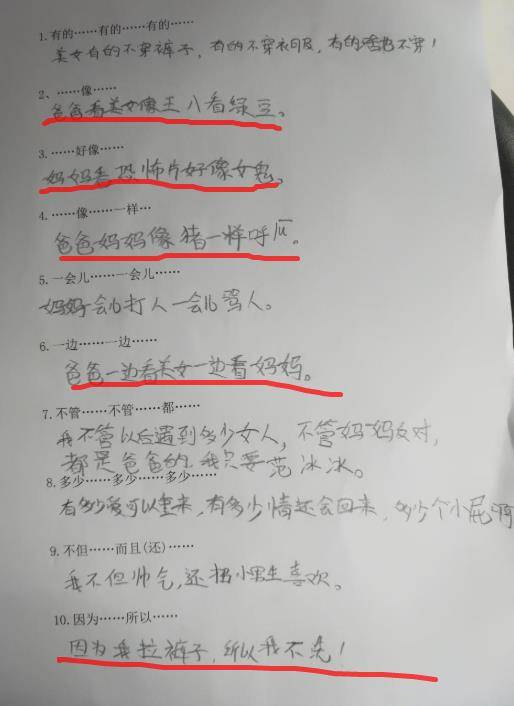 1.有的……有的……有的……
美女有的不穿裤子，有的不穿衣服，有的啥也不穿！
2、……像……
爸爸看美女像王八看绿豆。
3.……好像……
妈妈看恐怖片好像女鬼。
4.……像……一样…
爸爸妈妈像猪一样呼lu。
5.一会儿……一会儿……
妈妈一会儿打人一会儿骂人。
6.一边……一边……
爸爸一边看美女一边看妈妈。
7.不管……不管……都……
我不管以后遇到多少女人，不管妈妈反对，
都是爸爸的.我只要范冰冰。
8.多少……多少……多少……
有多少爱可以重来，有多少情还会回来，多少个小屁
9.不但……而且(还)……
我不但帅气，还招小男生喜欢。
10.因为……所以……
因为我拉裤子，所以我不洗！